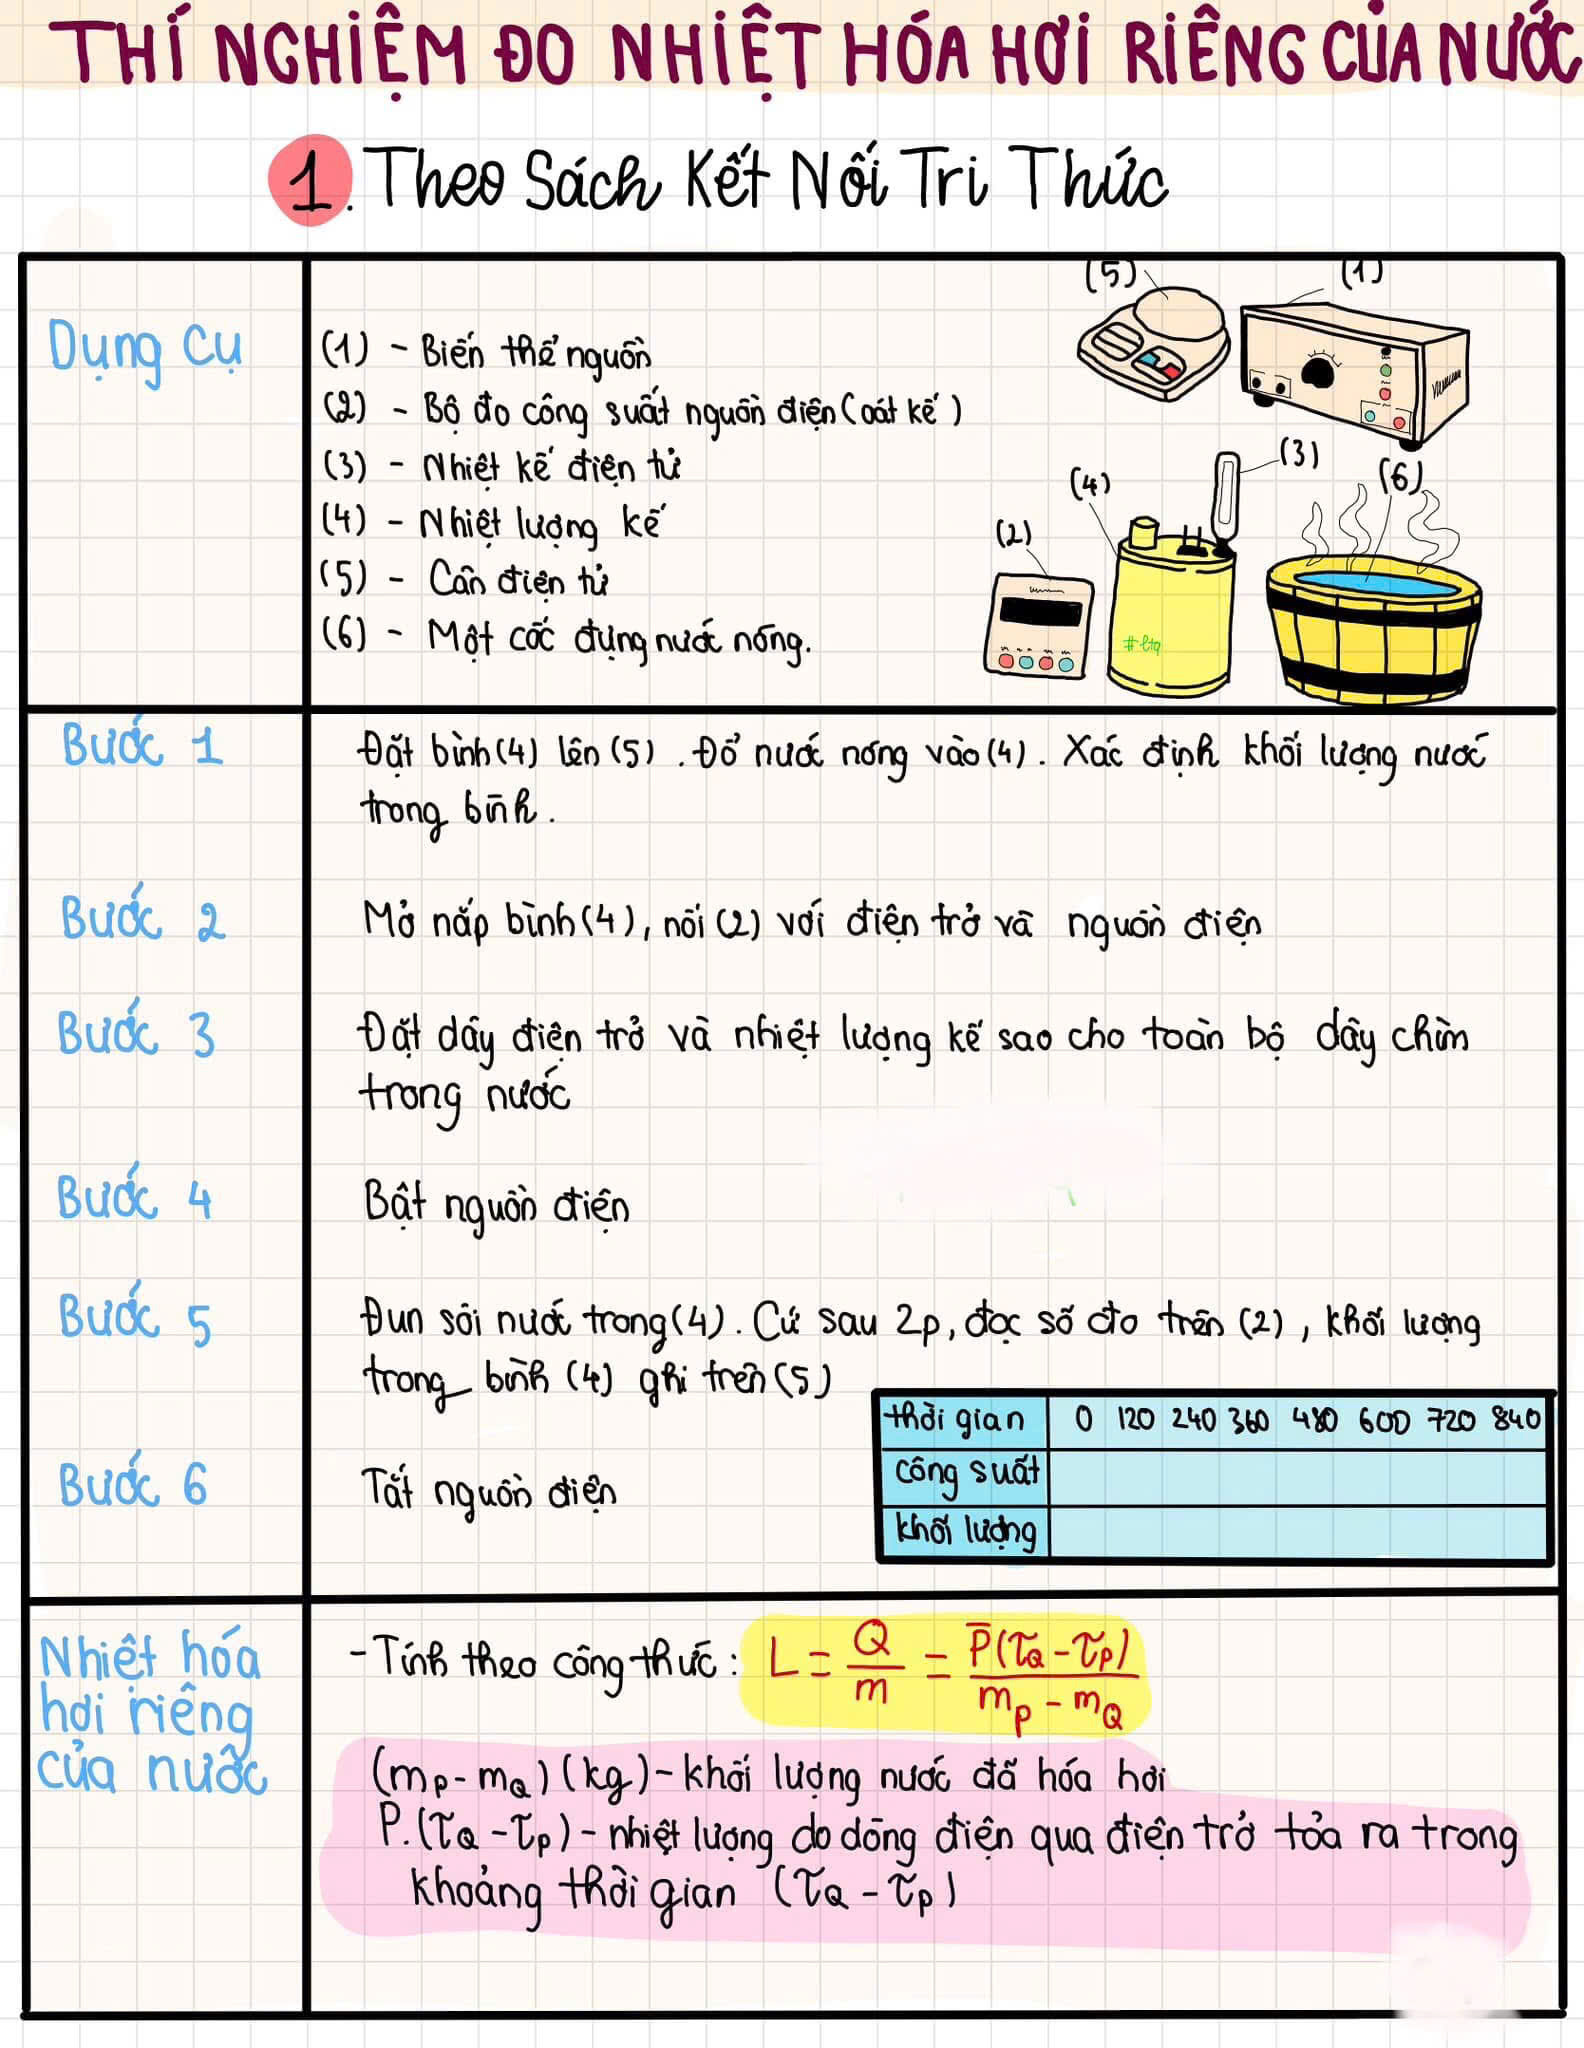 THÍ NGHIỆM ĐO NHIỆT HÓA HƠI RIÊNG CỦA NƯỚC
1. Theo Sách Kết Nối Tri Thức
Dụng cụ
(1) - Biến thế nguồn
(2) - Bộ đo công suất nguồn điện (oát kế)
(3) - Nhiệt kế điện tử
(4) - Nhiệt lượng kế
(5) - Cân điện tử
(6) - Một cốc đựng nước nóng.
(5)
(1)
(3)
(4)
(6)
(2)
#ltq
Bước 1
Đặt bình (4) lên (5). Đổ nước nóng vào (4). Xác định khối lượng nước
trong bình.
Bước 2
Mở nắp bình (4), nối (2) với điện trở và nguồn điện
Bước 3
Đặt dây điện trở và nhiệt lượng kế sao cho toàn bộ dây chìm
trong nước
Bước 4
Bật nguồn điện
Bước 5
Đun sôi nước trong (4). Cứ sau 2p, đọc số đo trên (2), khối lượng
trong bình (4) ghi trên (5)
Bước 6
Tắt nguồn điện
thời gian 0 120 240 360 480 600 720 840
công suất
khối lượng
Nhiệt hóa
hơi riêng
của nước
- Tính theo công thức: L = Q/m = P̄(τQ - τP)/(mP - mQ)
(mP - mQ) (kg) - khối lượng nước đã hóa hơi
P.(τQ - τP) - nhiệt lượng do dòng điện qua điện trở tỏa ra trong
khoảng thời gian (τQ - τP)